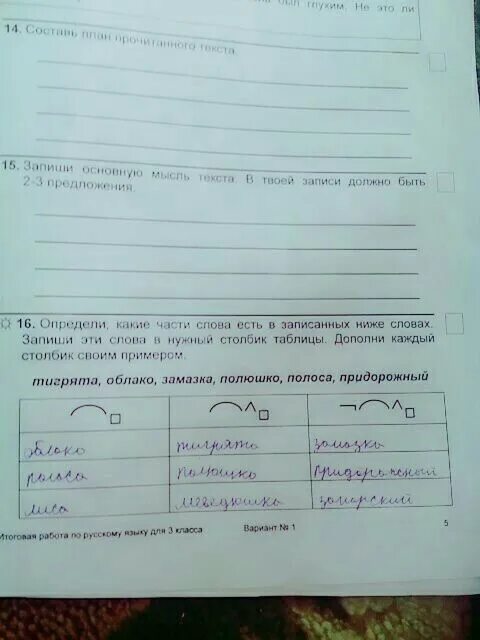 был глухим. Не это ли
14. Составь план прочитанного текста.
15. Запиши основную мысль текста. В твоей записи должно быть
2-3 предложения.
16. Определи, какие части слова есть в записанных ниже словах.
Запиши эти слова в нужный столбик таблицы. Дополни каждый
столбик своим примером.
тигрята, облако, замазка, полюшко, полоса, придорожный
облако тигрята замазка
полоса полюшко придорожный
лиса медведюшка заморский
Итоговая работа по русскому языку для 3 класса Вариант № 1 5